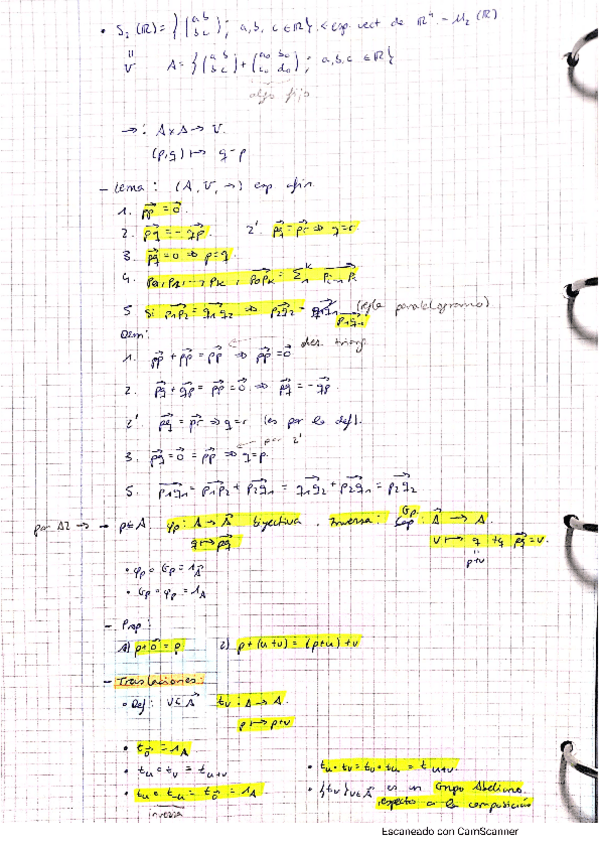 • S₂(ℝ) = {(a b / b c) ; a, b, c ∈ ℝ} < esp. vect de ℝ⁴ - M₂(ℝ)
V A = {(a b / b c) + (a₀ b₀ / c₀ d₀) ; a, b, c ∈ ℝ}
algo fijo
→ : A × A → V
(p,q) ↦ q-p
- Lema: (A, V, →) esp afín
1. pp⃗ = 0⃗
2. pq⃗ = -qp⃗ 2' pq⃗ = pr⃗ ⇒ q=r
3. pq⃗ = 0 ⇒ p=q
4. p₀, p₁, ..., pₖ, p₀pₖ⃗ = Σ₁ᵏ pᵢ₋₁pᵢ⃗
5 Si p₁p₂⃗ = q₁q₂⃗ ⇒ p₂q₂⃗ = p₁q₁⃗ (regla paralelogramo)
Dem:
1. pp⃗ + pp⃗ = pp⃗ ⇒ pp⃗ = 0⃗ des. triang
2. pq⃗ + qp⃗ = pp⃗ = 0⃗ ⇒ pq⃗ = -qp⃗.
2' pq⃗ = pr⃗ ⇒ q=r (es por la def).
3. pq⃗ = 0⃗ = pp⃗ ⇒ q=p. por 2'
5. p₁q₁⃗ = p₁p₂⃗ + p₂q₁⃗ = q₁q₂⃗ + p₂q₁⃗ = p₂q₂⃗
por A2 → - p∈A. φₚ: A → A⃗ biyectiva. Inversa: σₚ : A⃗ → A.
q ↦ pq⃗ v ↦ q tq pq⃗ = v.
p+v
• φₚ ∘ σₚ = 1_A⃗
• σₚ ∘ φₚ = 1_A
- Prop:
1) p+0⃗ = p 2) p+(u+v) = (p+u)+v
- Traslaciones:
• Def: v∈A⃗ t_v : A → A.
p ↦ p+v
• t_0⃗ = 1_A
• t_u ∘ t_v = t_{u+v} • t_u ∘ t_v = t_v ∘ t_u = t_{u+v}.
• t_u ∘ t_{-u} = t_0⃗ = 1_A • {t_v}_{v∈A⃗} es un Grupo Abeliano
inversa respecto a la composición
Escaneado con CamScanner